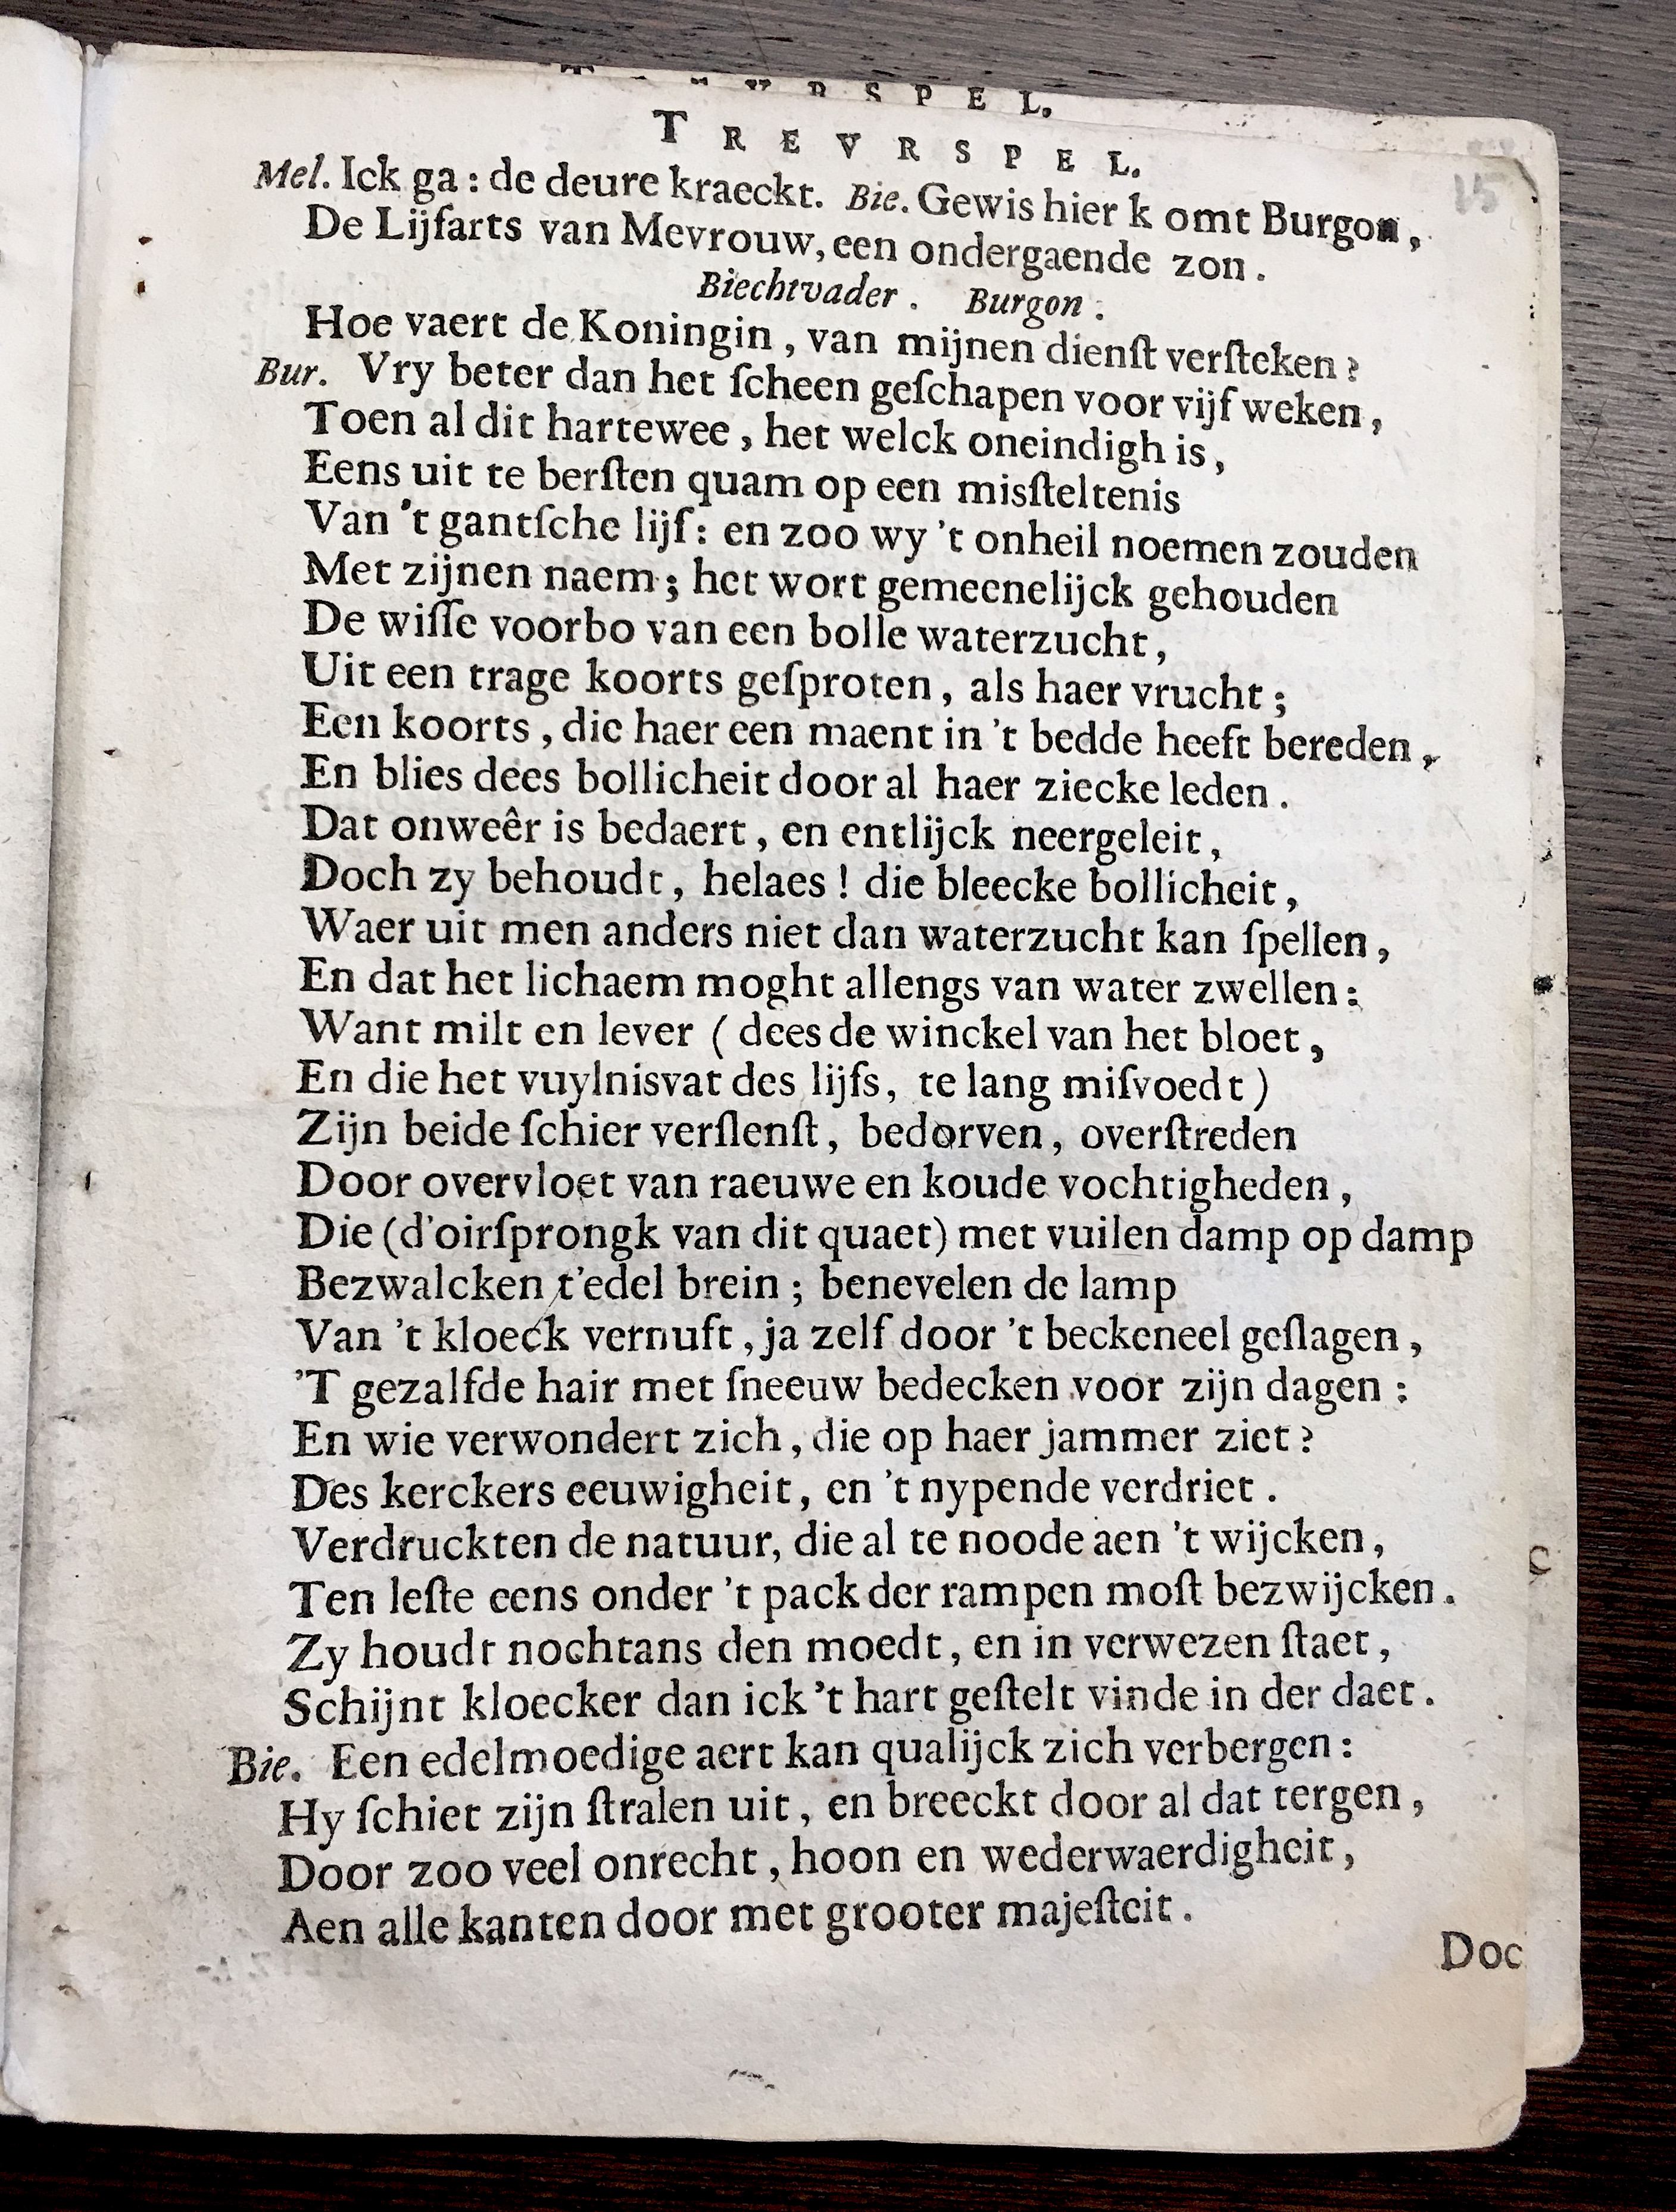 S P E L.
T R E V R S P E L.
15
Mel. Ick ga : de deure kraeckt. Bie. Gewis hier k omt Burgon,
De Lijfarts van Mevrouw, een ondergaende zon.
Biechtvader. Burgon.
Hoe vaert de Koningin, van mijnen dienſt verſteken?
Bur. Vry beter dan het ſcheen geſchapen voor vijf weken,
Toen al dit hartewee, het welck oneindigh is,
Eens uit te berſten quam op een misſteltenis
Van 't gantſche lijf: en zoo wy 't onheil noemen zouden
Met zijnen naem; het wort gemeenelijck gehouden
De wiſſe voorbo van een bolle waterzucht,
Uit een trage koorts geſproten, als haer vrucht;
Een koorts, die haer een maent in 't bedde heeft bereden,
En blies dees bollicheit door al haer ziecke leden.
Dat onweêr is bedaert, en entlijck neergeleit,
Doch zy behoudt, helaes! die bleecke bollicheit,
Waer uit men anders niet dan waterzucht kan ſpellen,
En dat het lichaem moght allengs van water zwellen:
Want milt en lever (dees de winckel van het bloet,
En die het vuylnisvat des lijfs, te lang miſvoedt)
Zijn beide ſchier verſlenſt, bedorven, overſtreden
Door overvloet van raeuwe en koude vochtigheden,
Die (d'oirſprongk van dit quaet) met vuilen damp op damp
Bezwalcken t'edel brein; benevelen de lamp
Van 't kloeck vernuft, ja zelf door 't beckeneel geſlagen,
'T gezalfde hair met ſneeuw bedecken voor zijn dagen:
En wie verwondert zich, die op haer jammer ziet?
Des kerckers eeuwigheit, en 't nypende verdriet.
Verdruckten de natuur, die al te noode aen 't wijcken,
Ten leſte eens onder 't pack der rampen moſt bezwijcken.
Zy houdt nochtans den moedt, en in verwezen ſtaet,
Schijnt kloecker dan ick 't hart geſtelt vinde in der daet.
Bie. Een edelmoedige aert kan qualijck zich verbergen:
Hy ſchiet zijn ſtralen uit, en breeckt door al dat tergen,
Door zoo veel onrecht, hoon en wederwaerdigheit,
Aen alle kanten door met grooter majeſteit.
Doc